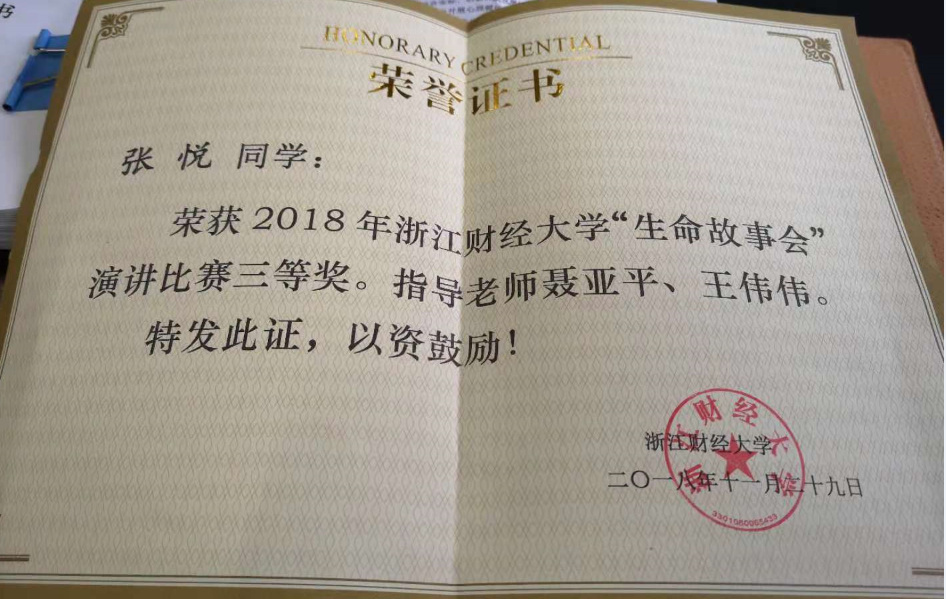 HONORARY CREDENTIAL
荣誉证书
张 悦 同学：
荣获 2018 年浙江财经大学“生命故事会”
演讲比赛三等奖。指导老师聂亚平、王伟伟。
特发此证，以资鼓励！
浙江财经大学
二〇一八年十一月二十九日
浙江财经大学
书